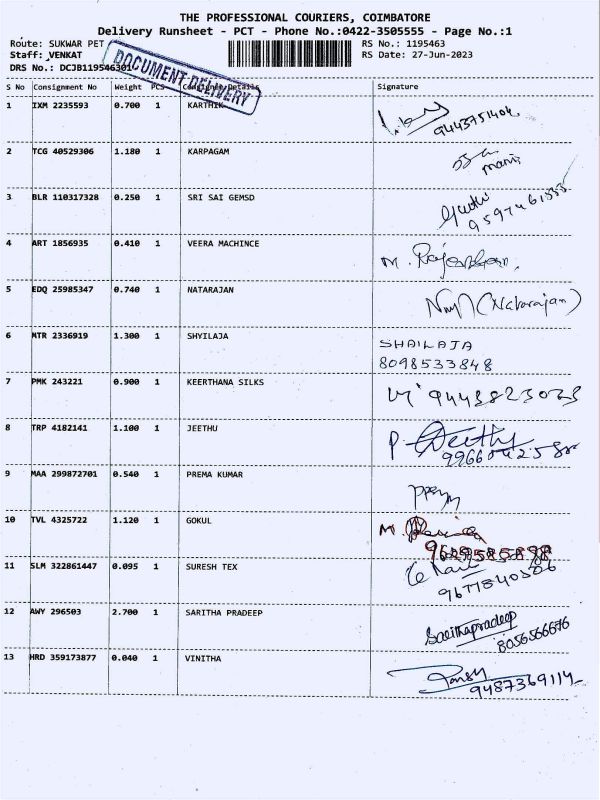 THE PROFESSIONAL COURIERS, COIMBATORE
Delivery Runsheet - PCT - Phone No.:0422-3505555 - Page No.:1
Route: SUKWAR PET RS No.: 1195463
Staff: VENKAT RS Date: 27-Jun-2023
DRS No.: DCJB119546301
DOCUMENT DELIVERY
S No Consignment No Weight PCS Consignee Details Signature
1 IXM 2235593 0.700 1 KARTHIK
9443751404
2 TCG 40529306 1.180 1 KARPAGAM
mani
3 BLR 110317328 0.250 1 SRI SAI GEMSD
4 ART 1856935 0.410 1 VEERA MACHINCE
M.
5 EDQ 25985347 0.740 1 NATARAJAN
(Natarajan)
6 MTR 2336919 1.300 1 SHYILAJA
SHAILAJA
8098533848
7 PMK 243221 0.900 1 KEERTHANA SILKS
8 TRP 4182141 1.100 1 JEETHU
P. Jeethu
9 MAA 299872701 0.540 1 PREMA KUMAR
10 TVL 4325722 1.120 1 GOKUL
M.
11 SLM 322861447 0.095 1 SURESH TEX
12 AWY 296503 2.700 1 SARITHA PRADEEP
Sarithapradeep
8056566676
13 HRD 359173877 0.040 1 VINITHA
9487369114